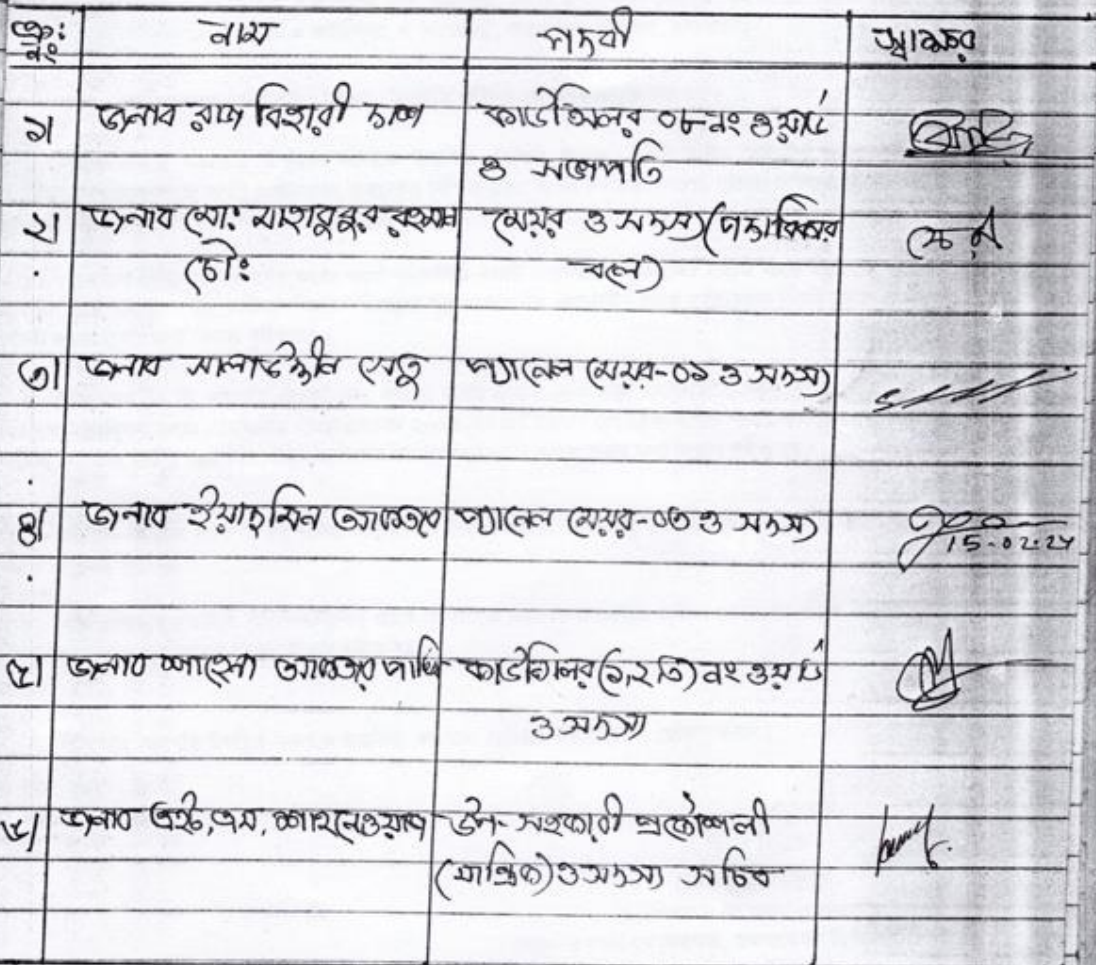 ক্রঃ নং নাম পদবী স্বাক্ষর
১। জনাব রাজ বিহারী দাশ কাউন্সিলর ০৮নং ওয়ার্ড
ও সভাপতি
২। জনাব মোঃ মাহাবুবুর রহমান মেয়র ও সদস্য (পদাধিকার
চৌঃ বলে)
৩। জনাব সালাউদ্দীন সেতু প্যানেল মেয়র-০১ ও সদস্য
৪। জনাব ইয়াছমিন আকতার প্যানেল মেয়র-০৩ ও সদস্য
15-02-24
৫। জনাব শাহেনা আকতার পাখি কাউন্সিলর (১,২,৩) নং ওয়ার্ড
ও সদস্য
৬। জনাব এইচ,এম, শাহনেওয়াজ উপ-সহকারী প্রকৌশলী
(যান্ত্রিক) ও সদস্য সচিব